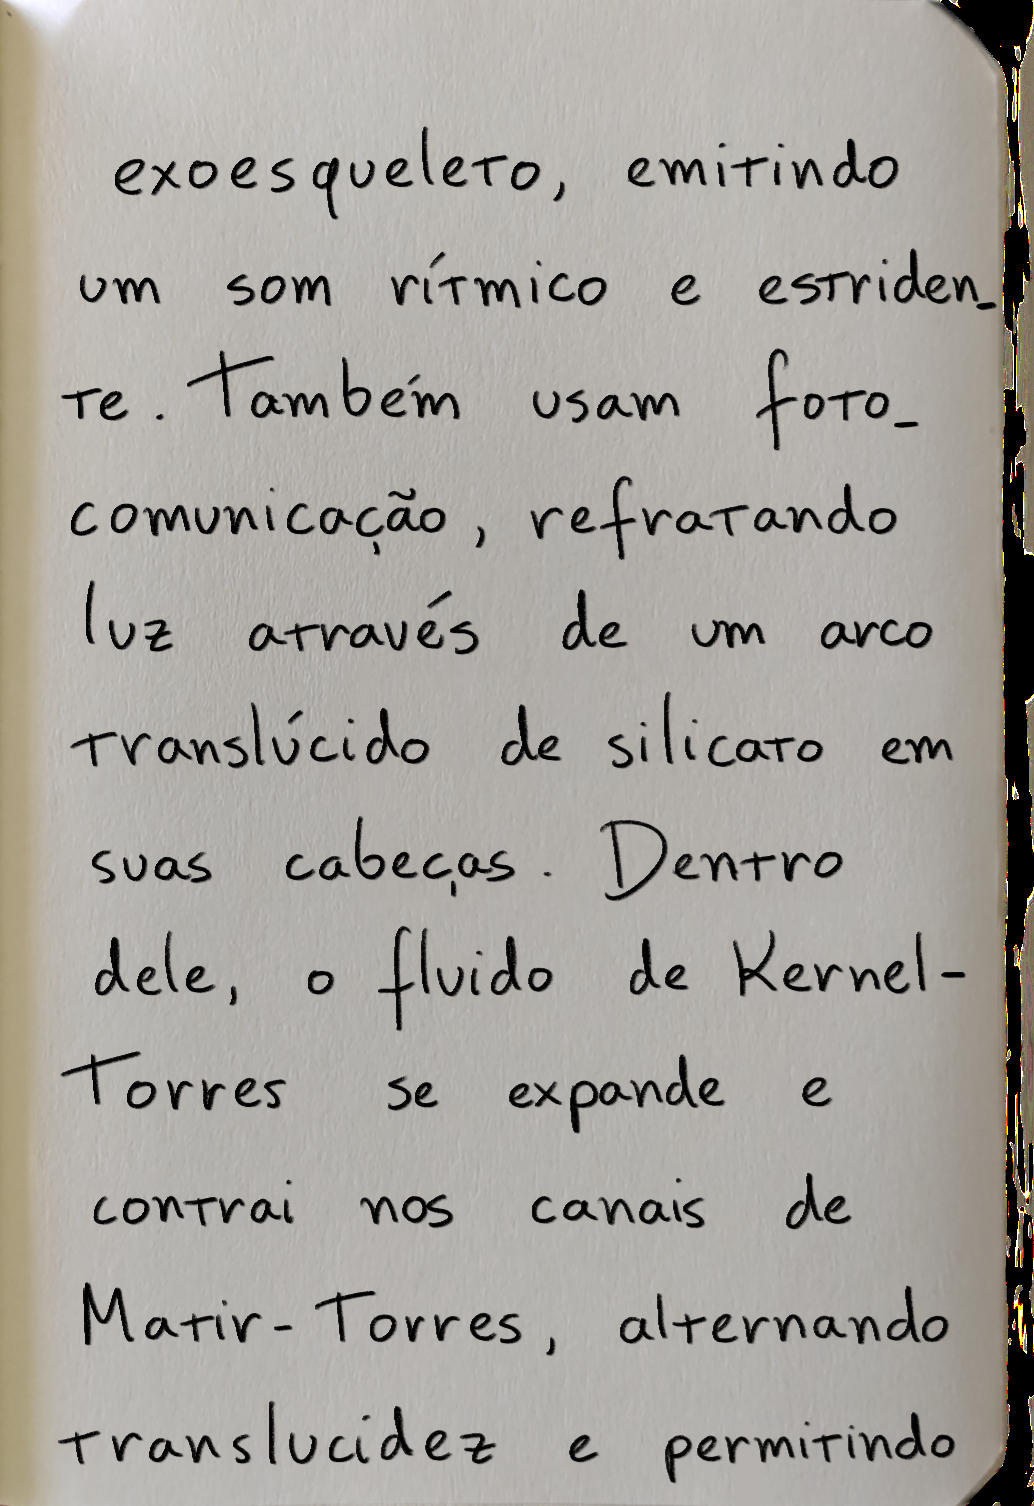 exoesqueleto, emitindo
um som rítmico e estriden_
te. Também usam foto_
comunicação, refratando
luz através de um arco
translúcido de silicato em
suas cabeças. Dentro
dele, o fluido de Kernel-
Torres se expande e
contrai nos canais de
Matir-Torres, alternando
translucidez e permitindo